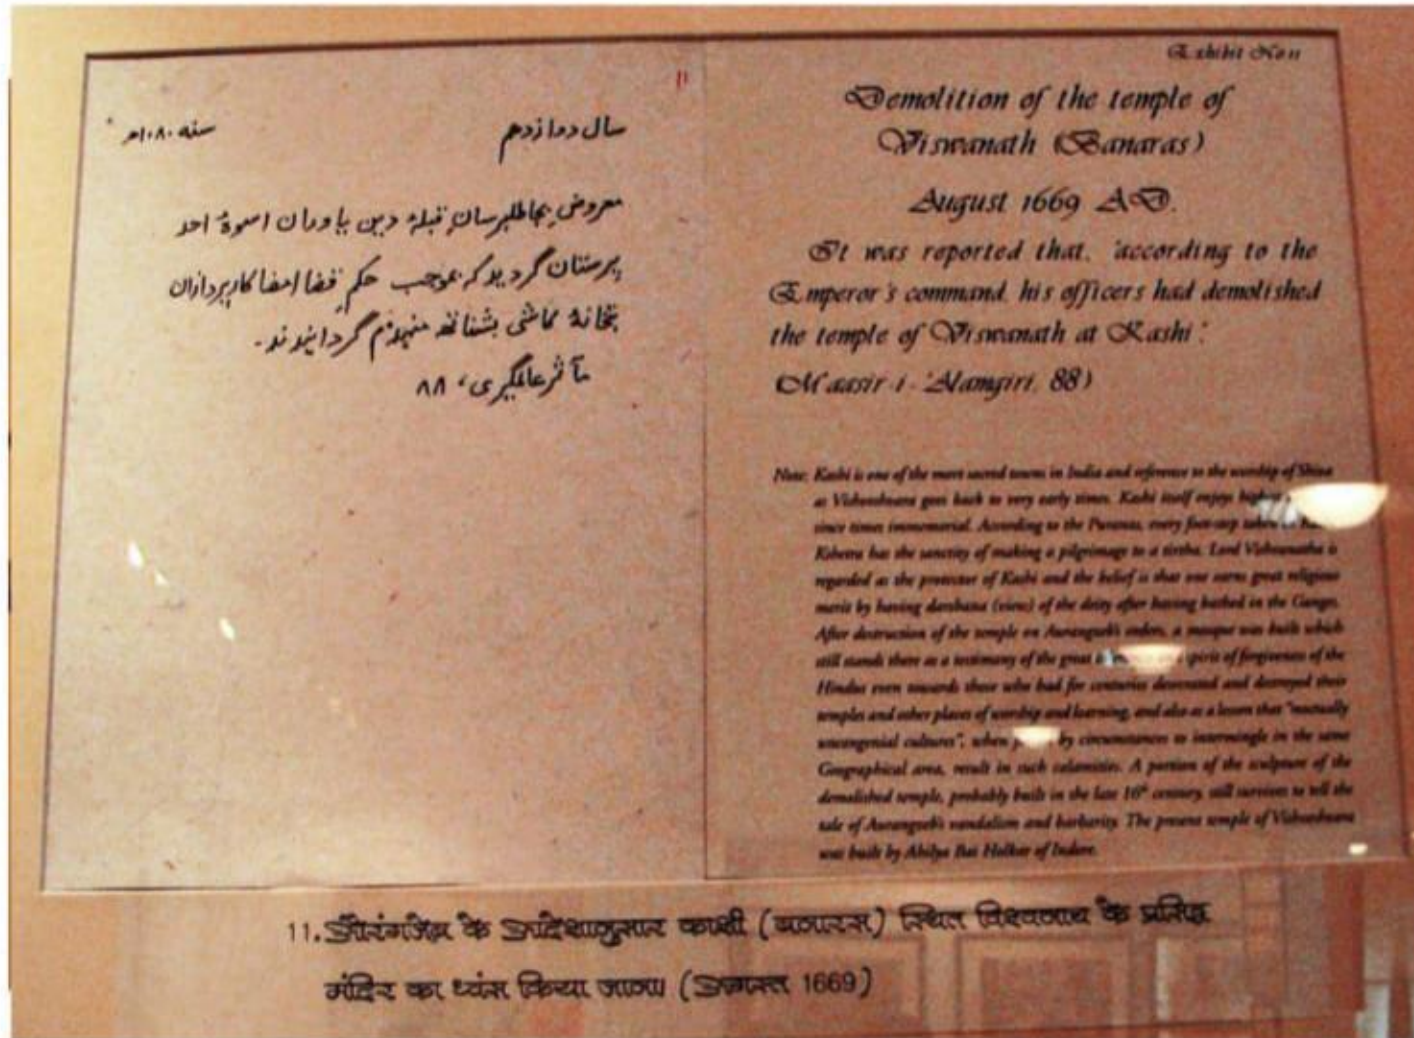 ۱۱
سال دوازدهم سنه ۱۰۸۰هـ
معروض بخاطرسان قبلهٔ دین یاوران اسوهٔ احد
پرستان گردید که بموجب حکم قضا امضا کارپردازان
بتخانهٔ کاشی بشناتهه منهدم گردانیدند۔
مآثر عالمگیری، ۸۸
Exhibit No 11
Demolition of the temple of
Viswanath (Banaras)
August 1669 AD.
It was reported that, 'according to the
Emperor's command, his officers had demolished
the temple of Viswanath at Kashi'.
(Maasir-i-'Alamgiri, 88)
Note: Kashi is one of the most sacred towns in India and reference to the worship of Shiva
as Vishveshvara goes back to very early times. Kashi itself enjoys highest
since times immemorial. According to the Puranas, every foot-step taken in
Kshetra has the sanctity of making a pilgrimage to a tirtha. Lord Vishvanatha is
regarded as the protector of Kashi and the belief is that one earns great religious
merit by having darshana (view) of the deity after having bathed in the Ganges.
After destruction of the temple on Aurangzeb's orders, a mosque was built which
still stands there as a testimony of the great spirit of forgiveness of the
Hindus even towards those who had for centuries desecrated and destroyed their
temples and other places of worship and learning, and also as a lesson that "mutually
uncongenial cultures", when by circumstances to intermingle in the same
Geographical area, result in such calamities. A portion of the sculpture of the
demolished temple, probably built in the late 16th century, still survives to tell the
tale of Aurangzeb's vandalism and barbarity. The present temple of Vishveshvara
was built by Ahilya Bai Holkar of Indore.
11. औरंगजेब के आदेशानुसार काशी (बनारस) स्थित विश्वनाथ के प्रसिद्ध
मंदिर का ध्वंस किया जाना। (अगस्त 1669)